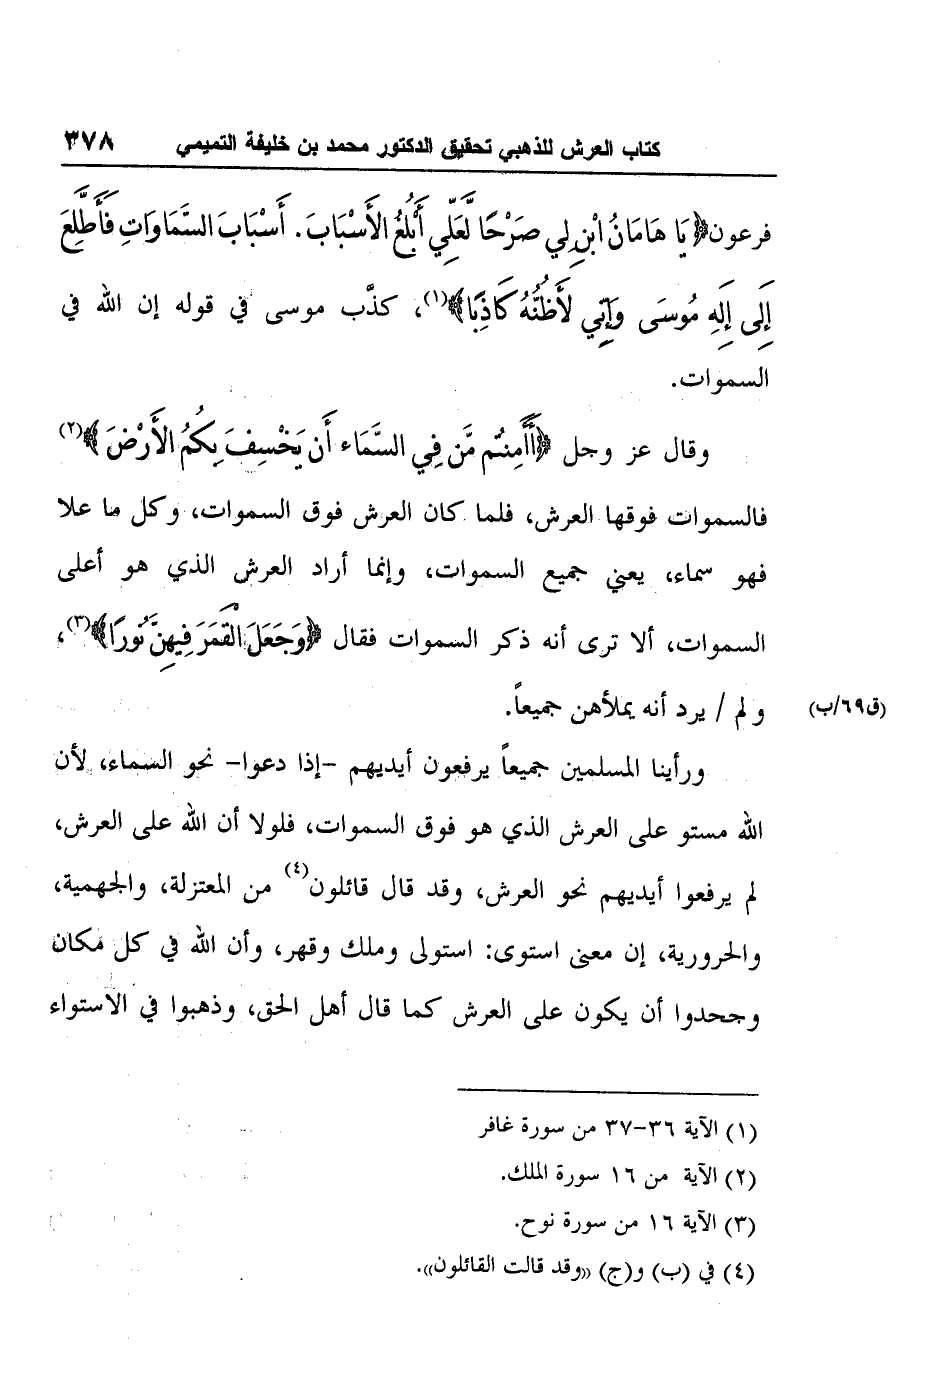 كتاب العرش للذهبي تحقيق الدكتور محمد بن خليفة التميمي ٣٧٨
فرعون﴿يَا هَامَانُ ابْنِ لِي صَرْحًا لَّعَلِّي أَبْلُغُ الأَسْبَابَ. أَسْبَابَ السَّمَاوَاتِ فَأَطَّلِعَ
إِلَى إِلَهِ مُوسَى وَإِنِّي لأَظُنُّهُ كَاذِبًا﴾(١)، كذَّب موسى في قوله إن الله في
السموات.
وقال عز وجل ﴿أَأَمِنتُم مَّن فِي السَّمَاء أَن يَخْسِفَ بِكُمُ الأَرْضَ﴾(٢)
فالسموات فوقها العرش، فلما كان العرش فوق السموات، وكل ما علا
فهو سماء، يعني جميع السموات، وإنما أراد العرش الذي هو أعلى
السموات، ألا ترى أنه ذكر السموات فقال ﴿وَجَعَلَ الْقَمَرَ فِيهِنَّ نُورًا﴾(٣)،
و لم / يرد أنه يملأهن جميعاً. (ق٦٩/ب)
ورأينا المسلمين جميعاً يرفعون أيديهم -إذا دعوا- نحو السماء، لأن
الله مستو على العرش الذي هو فوق السموات، فلولا أن الله على العرش،
لم يرفعوا أيديهم نحو العرش، وقد قال قائلون(٤) من المعتزلة، والجهمية،
والحرورية، إن معنى استوى: استولى وملك وقهر، وأن الله في كل مكان
وجحدوا أن يكون على العرش كما قال أهل الحق، وذهبوا في الاستواء
(١) الآية ٣٦-٣٧ من سورة غافر
(٢) الآية من ١٦ سورة الملك.
(٣) الآية ١٦ من سورة نوح.
(٤) في (ب) و(ج) ((وقد قالت القائلون)).